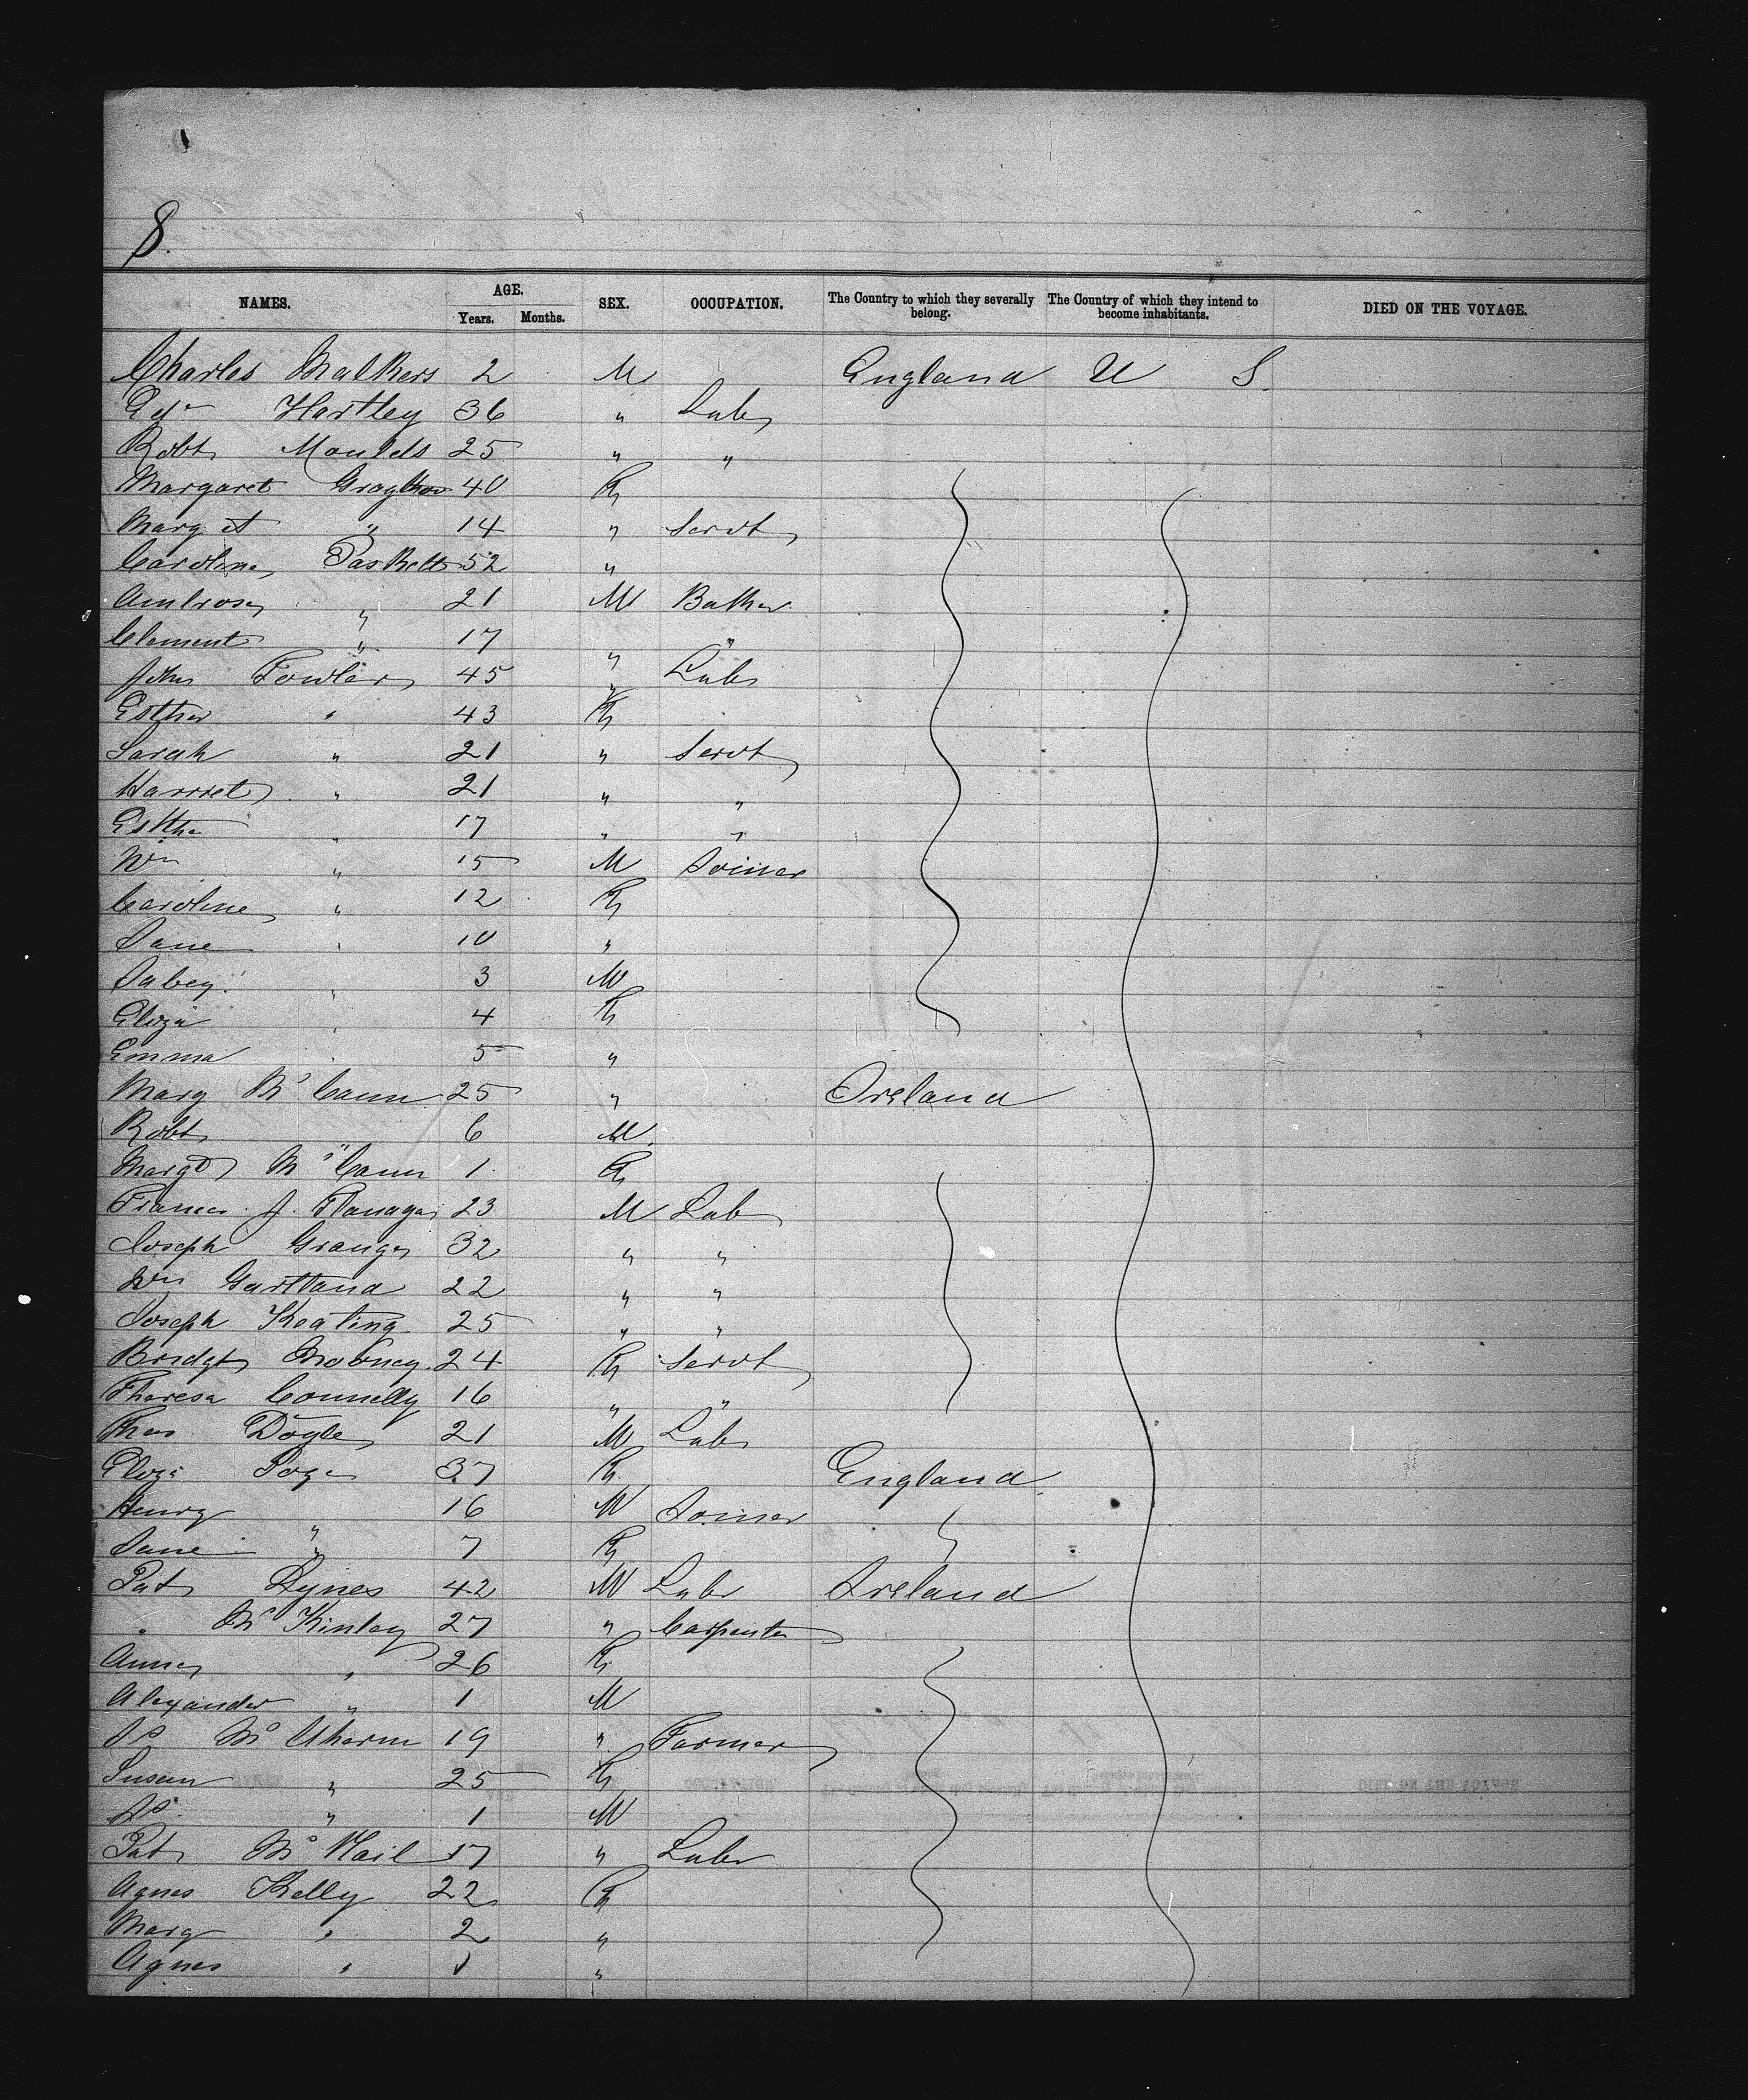 8.
NAMES. AGE. SEX. OCCUPATION. The Country to which they severally belong. The Country of which they intend to become inhabitants. DIED ON THE VOYAGE.
Years. Months.
Charles 2 M England U S
Edw Hartley 36 " Labr
Robt Moulds 25 " "
Margaret 40 F
Margt " 14 " Servt
Caroline Paskett 52 "
Ambrose " 21 M
Clement " 17 " "
John Fowler 45 " Labr
Esther " 43 F
Sarah " 21 " Servt
Harriet " 21 " "
Esther " 17 " "
Wm " 15 M Joiner
Caroline " 12 F
Jane " 10 "
" 3 M
Eliza " 4 F
Emma " 5 "
Mary McCann 25 " Ireland
Robt " 6 M
Margt McCann 1 F
Francis J. Flanagan 23 M Labr
Joseph Granger 32 " "
Wm Gartland 22 " "
Joseph Keating 25 " "
Bridgt Mooney 24 F Servt
Theresa Connelly 16 " "
Thos Doyle 21 M Labr
Eliza 37 F England
Henry " 16 M Joiner
Jane " 7 F
Pat Rynes 42 M Labr Ireland
" McKinley 27 " Carpenter
Anne " 26 F
Alexander " 1 M
Js 19 " Farmer
Susan " 25 F
Js " 1 M
Pat McNail 17 " Labr
Agnes Kelly 22 F
Mary " 2 "
Agnes " "